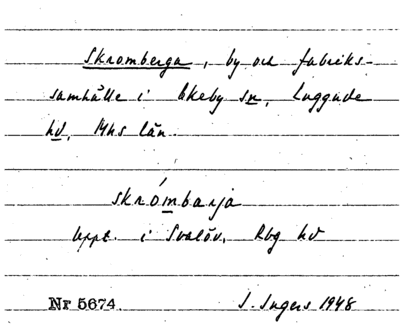 Skromberga, by och fabriks-
samhälle i Ekeby sn, Luggude
hd, Mhs län.
skrómbarja
uppt. i Svalöv, Rbg hd
Nr 5674. I. Ingers 1948